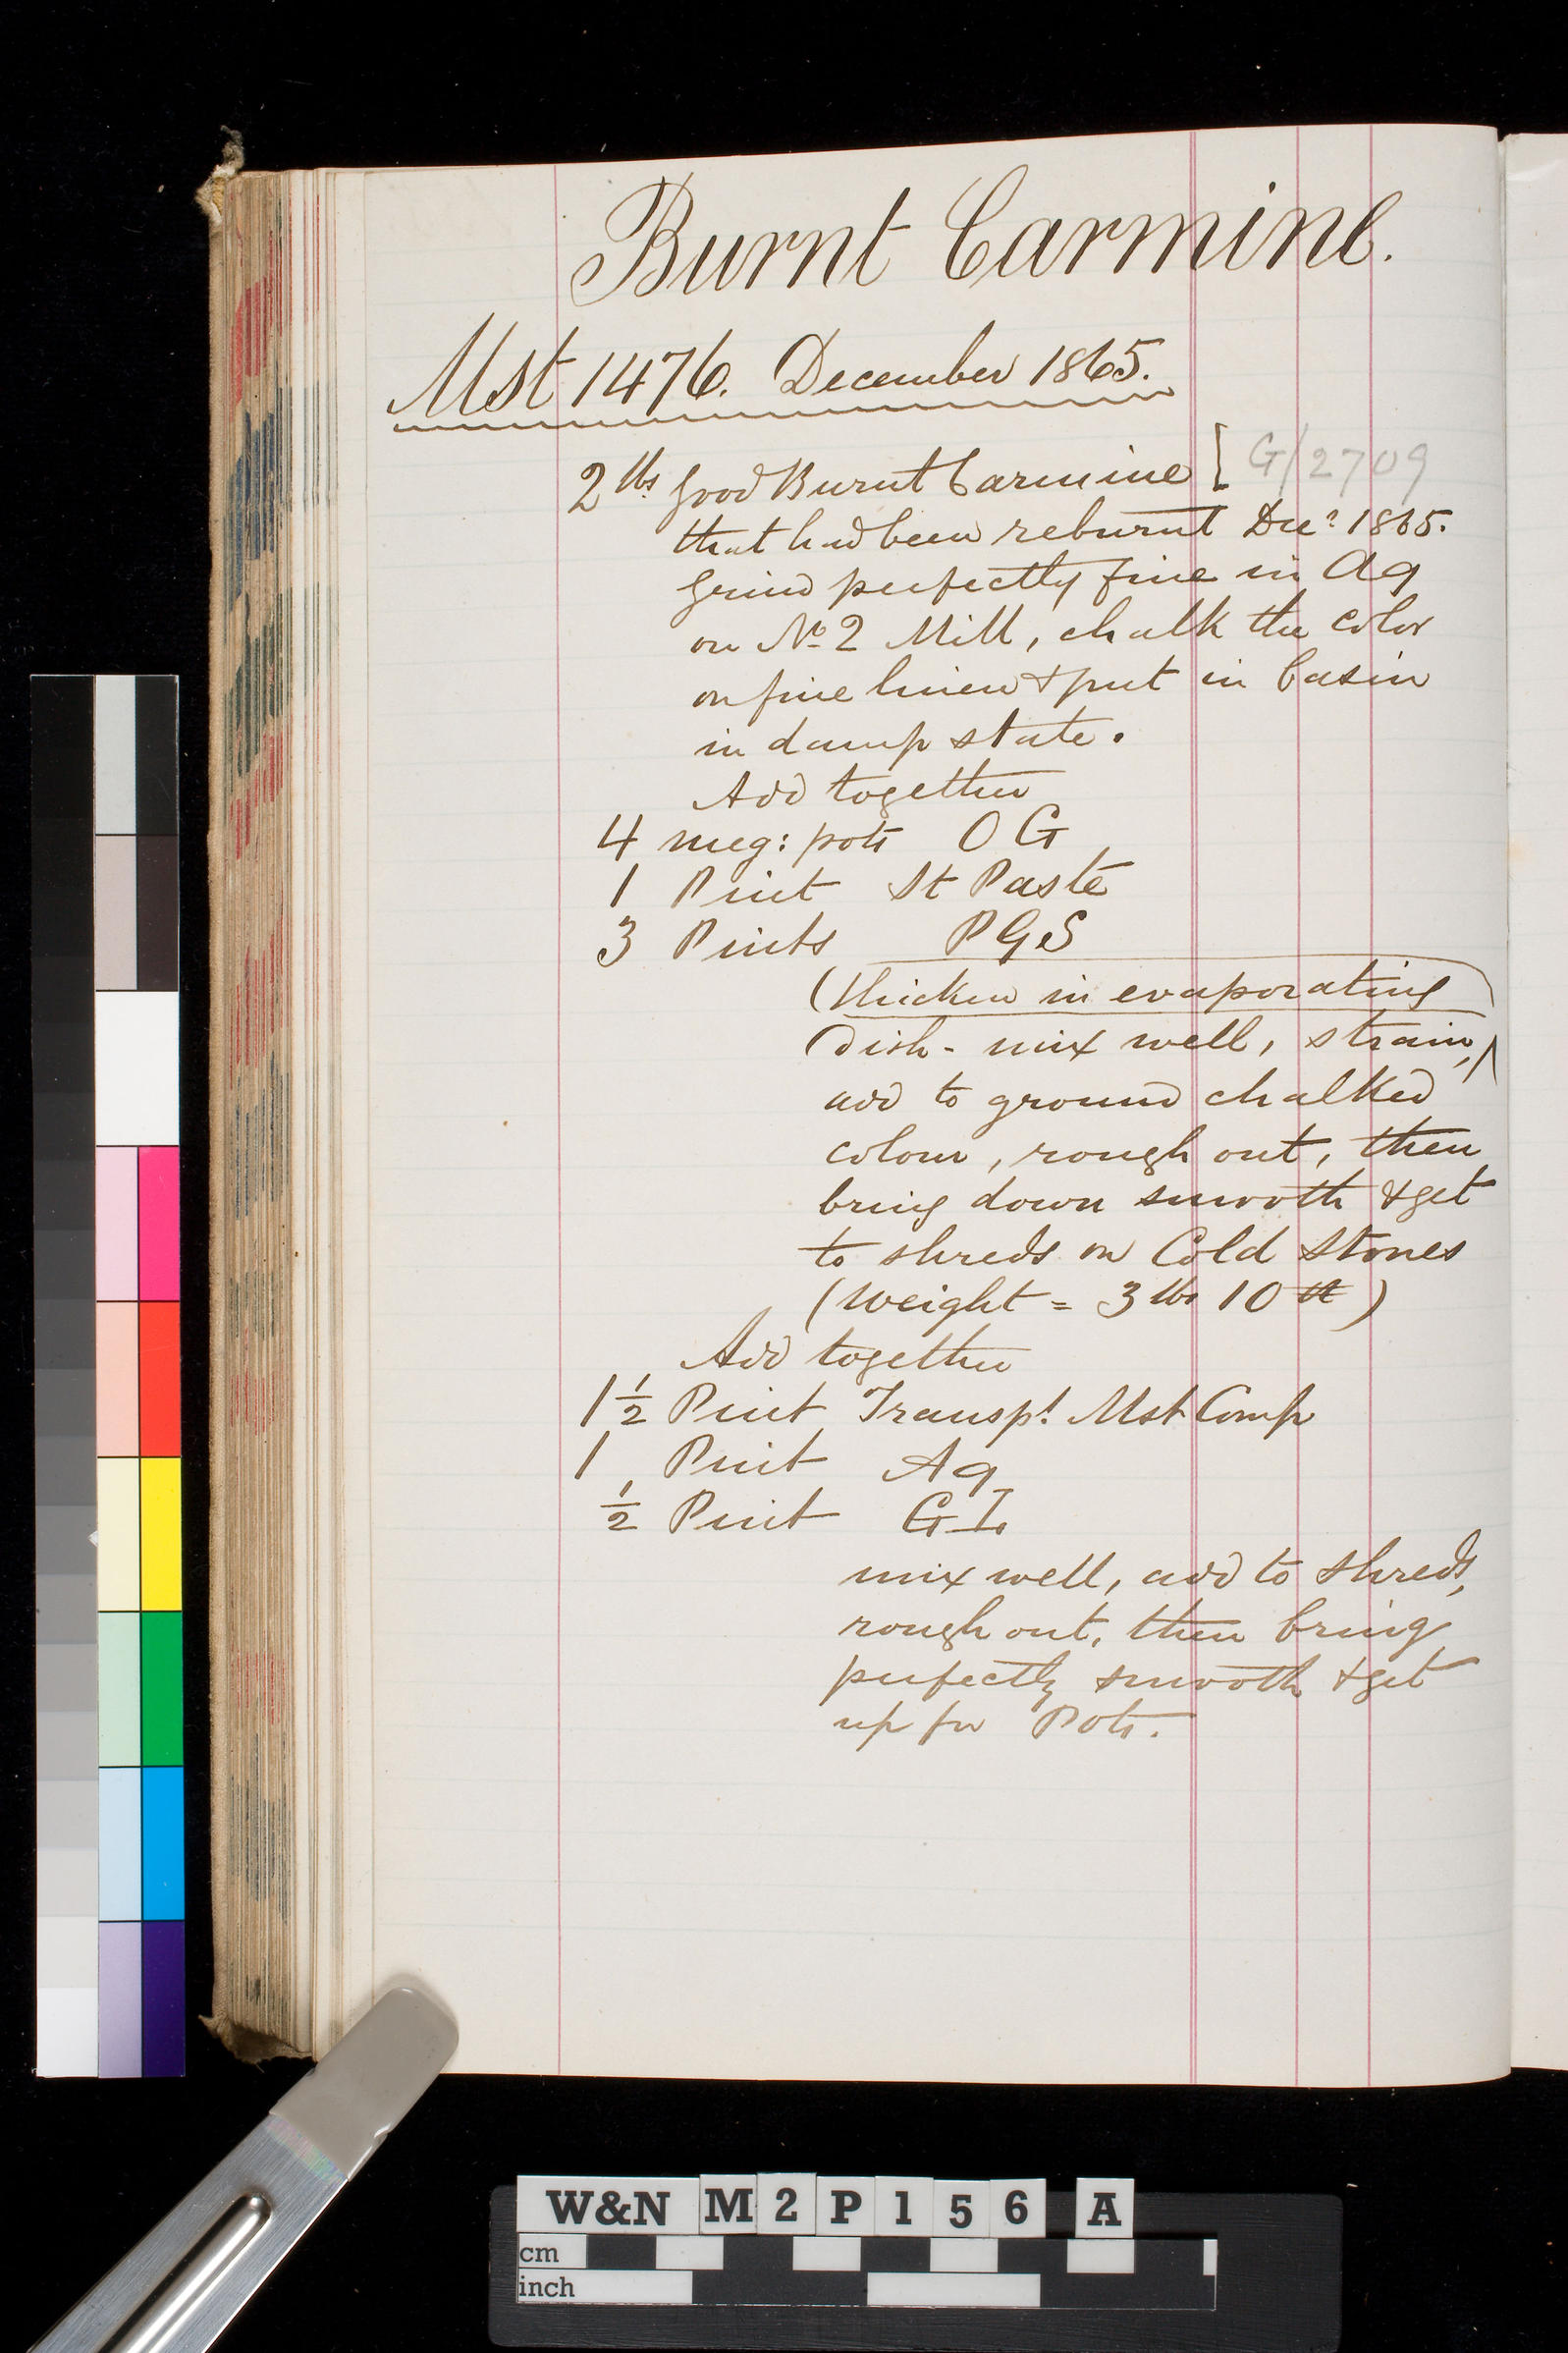 Burnt Carmine.
Mst 1476. December 1865.
2 lbs good Burnt Carmine [ G/2709
that had been reburnt Decr 1865.
Grind perfectly fine in Aq
on No 2 Mill, chalk the color
on fine linen & put in basin
in damp state.
Add together
4 meg: pots O G
1 Pint St Paste
3 Pints P G S
(thicken in evaporating
dish - mix well, strain,)
add to ground chalked
colour, rough out, then
bring down smooth & get
to shreds on Cold Stones
(Weight = 3 lbs 10 )
Add together
1 1/2 Pint Transpt Mst Comp
1 Pint Aq
1/2 Pint G I
mix well, add to shreds,
rough out, then bring
perfectly smooth & get
up for Pots.
W&N M2P156 A
cm
inch